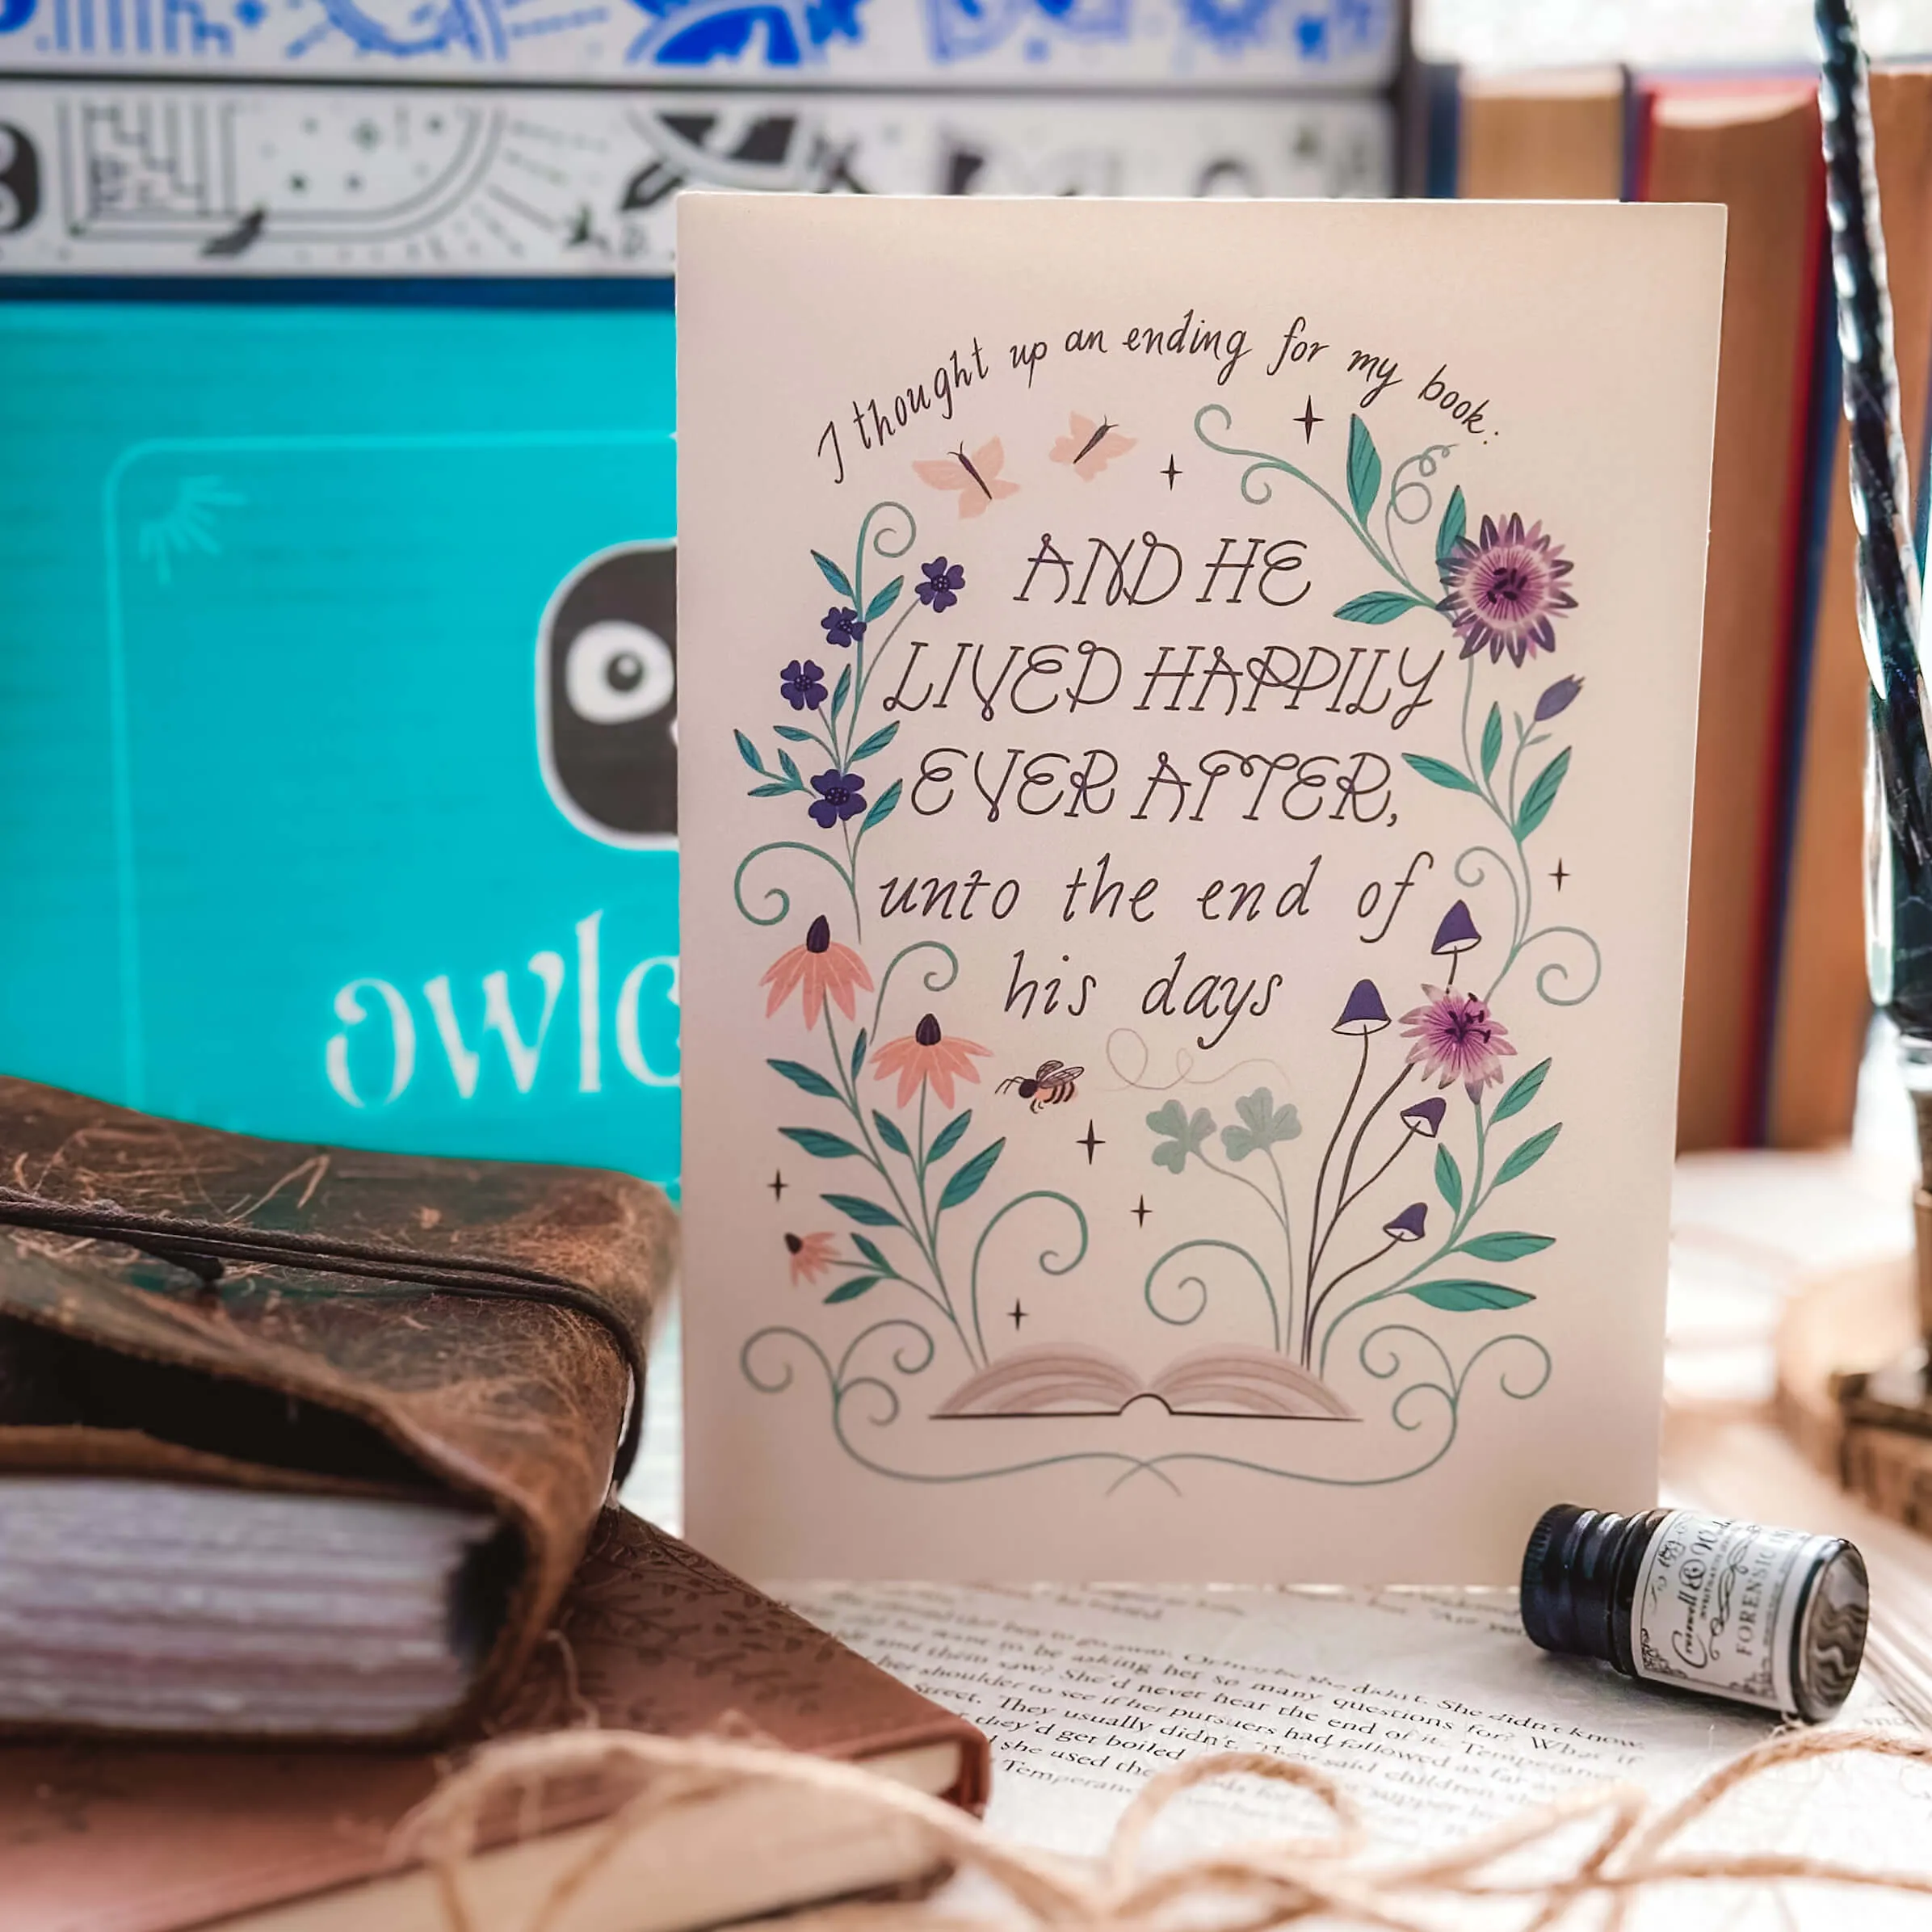 I thought up an ending for my book:
AND HE
LIVED HAPPILY
EVER AFTER,
unto the end of
his days
owlc
FORENSIC
to be asking her so many questions for? What if
them saw? She'd never hear the end of it. Temperance
shoulder to see if her pursuers had followed as far as
street. They usually didn't. They said children
they'd get boiled
she used the